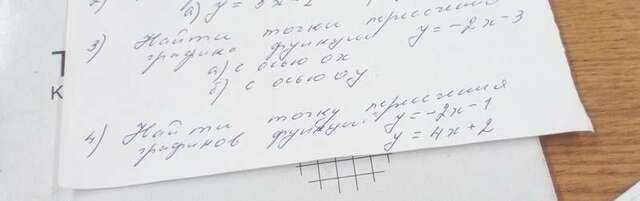 а) y = 3x-
3) Найти точки пересечения
графика функции y = -2x-3
а) с осью ох
б) с осью оу
4) Найти точку пересечения
графиков функций y = -2x-1
y = 4x+2